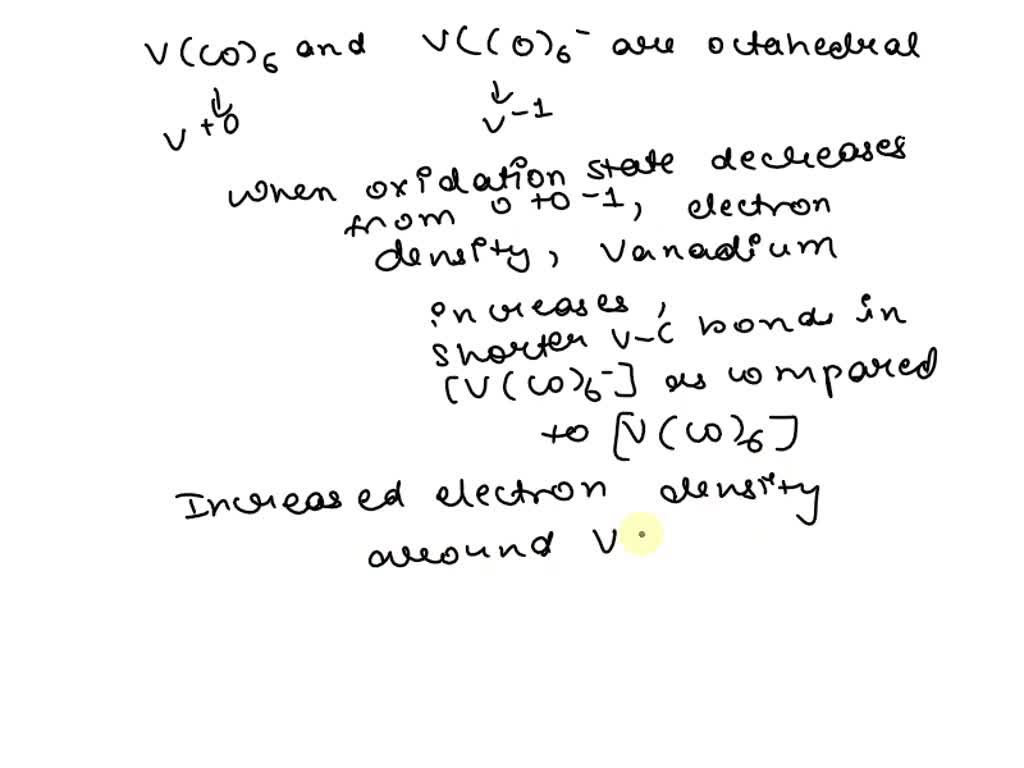 V(CO)6 and V(CO)6⁻ are octahedral
↓ ↓
V⁺⁰ V⁻¹
when oxidation state decreases
from 0 to -1, electron
density, vanadium
increases,
shorter V-C bonds in
[V(CO)6⁻] as compared
to [V(CO)6]
Increased electron density
around V